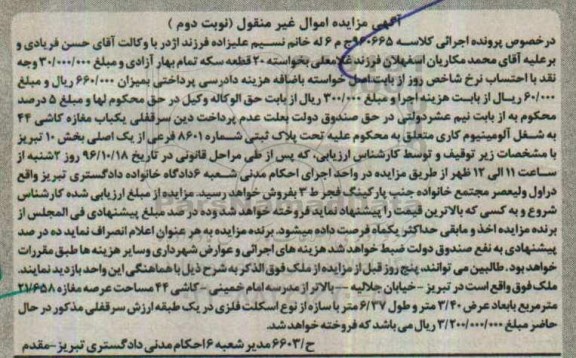 آگهی مزایده اموال غیر منقول (نوبت دوم )
درخصوص پرونده اجرائی کلاسه ۹۶۰۶۶۵ج م ۶ له خانم نسیم علیزاده فرزند اژدر با وکالت آقای حسن فریادی و
برعلیه آقای محمد مکاریان اسفهلان فرزند غلامعلی بخواسته ۲۰ قطعه سکه تمام بهار آزادی و مبلغ ۳۰/۰۰۰/۰۰۰ وجه
نقد با احتساب نرخ شاخص روز از بابت اصل خواسته باضافه هزینه دادرسی پرداختی بمیزان ۶۶۰/۰۰۰ ریال و مبلغ
۶۰/۰۰۰ ریال از بابت هزینه اجرا و مبلغ ۳۰۰/۰۰۰ ریال از بابت حق الوکاله وکیل در حق محکوم لها و مبلغ ۵ درصد
محکوم به از بابت نیم عشر دولتی در حق صندوق دولت بعلت عدم پرداخت دین سرقفلی یکباب مغازه کاشی ۴۴
به شغل آلومینیوم کاری متعلق به محکوم علیه تحت پلاک ثبتی شماره ۸۶۰۱ فرعی از یک اصلی بخش ۱۰ تبریز
با مشخصات زیر توقیف و توسط کارشناس ارزیابی، که پس از طی مراحل قانونی در تاریخ ۹۶/۱۰/۱۸ روز ۲شنبه از
ساعت ۱۱ الی ۱۲ ظهر از طریق مزایده در واحد اجرای احکام مدنی شعبه ۶ دادگاه خانواده دادگستری تبریز واقع
در اول ولیعصر مجتمع خانواده جنب پارکینگ فجر ط ۳ بفروش خواهد رسید. مزایده از مبلغ ارزیابی شده کارشناس
شروع و به کسی که بالاترین قیمت را پیشنهاد نماید فروخته خواهد شد وده در صد مبلغ پیشنهادی فی المجلس از
برنده مزایده اخذ و مابقی حداکثر یکماه فرصت داده میشود. برنده مزایده به هر عنوان اعلام انصراف نماید ده در صد
پیشنهادی به نفع صندوق دولت ضبط خواهد شد هزینه های اجرائی و عوارض شهرداری وسایر هزینه ها طبق مقررات
خواهد بود. طالبین می توانند، پنج روز قبل از مزایده از ملک فوق الذکر به شرح ذیل با هماهنگی این واحد بازدید نمایند.
ملک فوق واقع است در تبریز - خیابان جلالیه -- بالاتر از مدرسه امام خمینی - کاشی ۴۴ مساحت عرصه مغازه ۲۱/۶۵۸
مترمربع بابعاد عرض ۳/۴۰ متر و طول ۶/۳۷ متر با سازه از نوع اسکلت فلزی در یک طبقه ارزش سرقفلی مذکور در حال
حاضر مبلغ ۳/۲۰۰/۰۰۰/۰۰۰ ریال می باشد که فروخته خواهد شد.
ح/۶۶۰۳ مدیر شعبه ۶ احکام مدنی دادگستری تبریز-مقدم